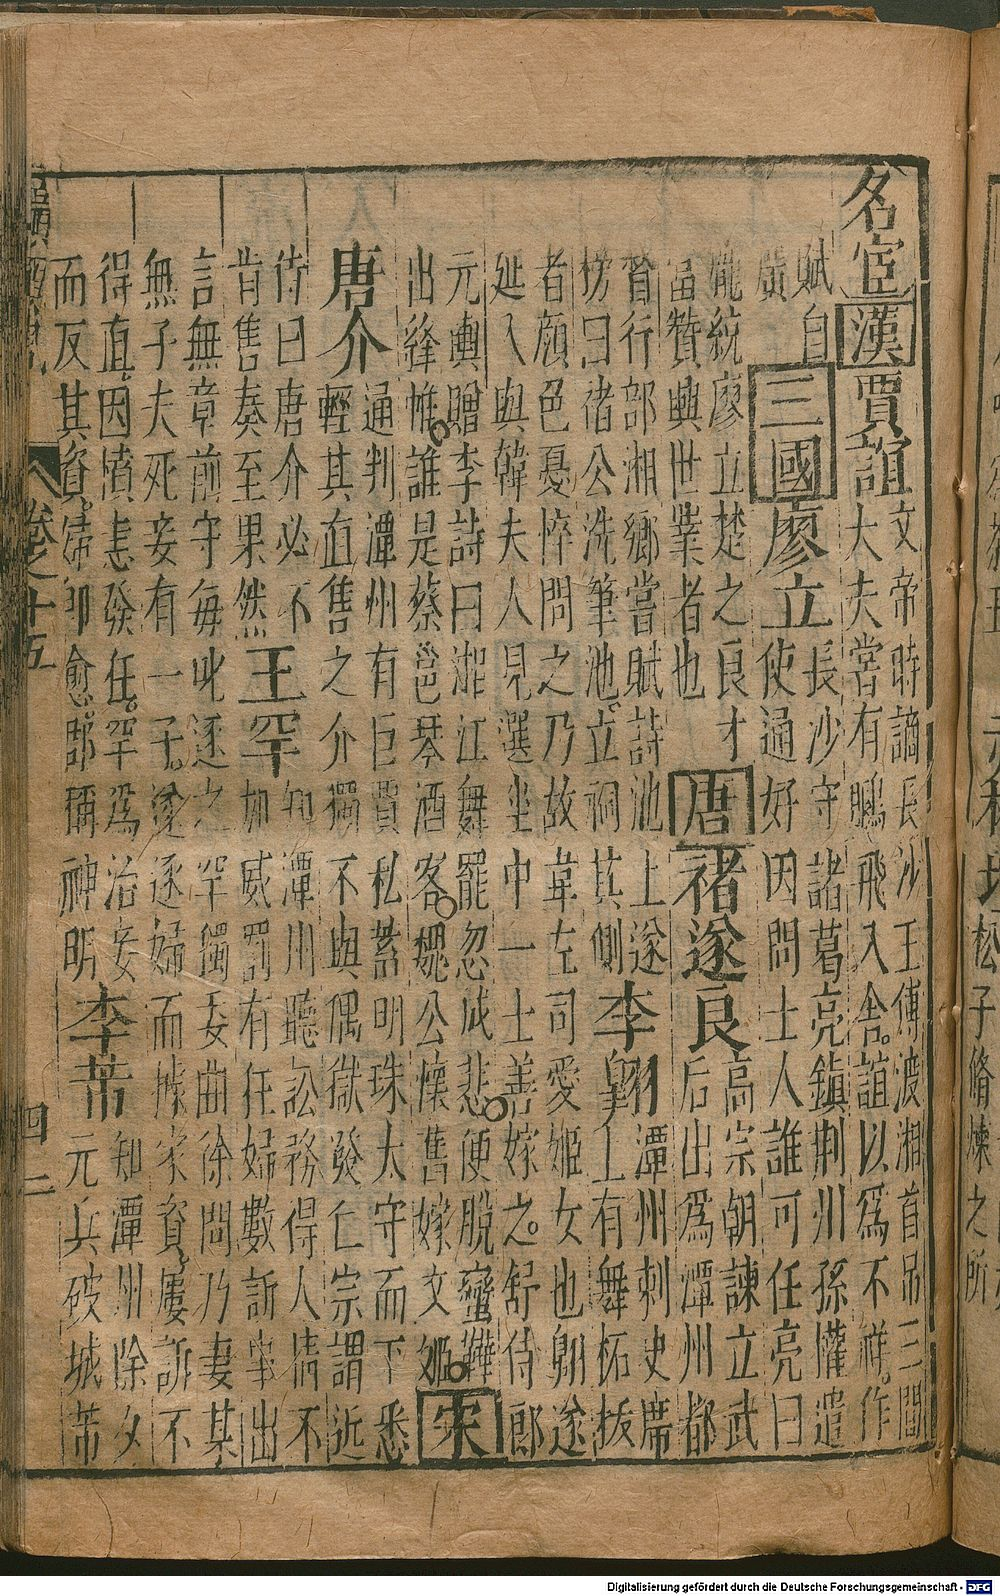 名宦 漢 賈誼 文帝時謫長沙王傅渡湘首吊三閭
大夫嘗有鵩飛入舍誼以為不祥作
賦自
廣 三國 廖立 長沙守諸葛亮鎮荆州孫權遣
使通好因問士人誰可任亮曰
龐統廖立楚之良才
當贊興世業者也 唐 褚遂良 高宗朝諫立武
后出為潭州都
督行部湘鄉嘗賦詩池上遂
榜曰褚公洗筆池立祠其側 李翱 潭州刺史席
上有舞柘拔
者顏色憂悴問之乃故韋左司愛姬女也翱遂
延入與韓夫人見選坐中一士善嫁之舒侍郎
元輿贈李詩曰湘江舞罷忽成悲便脫蠻鞾
出絳帷誰是蔡邕琴酒客魏公懷舊嫁文姬 宋
唐介 通判潭州有巨賈私蓄明珠太守而下悉
輕其直售之介獨不與偶獄發仁宗謂近
侍曰唐介必不
肯售奏至果然 王罕 知潭州聽訟務得人情不
加威罰有狂婦數訴事出
言無章前守每叱逐之罕獨委曲徐問乃妻某
無子夫死妾有一子遂逐婦而據家資屢訴不
得直因憤恚發狂罕為治妾
而反其資婦即愈郡稱神明 李芾 知潭州除夕
元兵破城芾
卷之十五 四二
Digitalisierung gefördert durch die Deutsche Forschungsgemeinschaft - DFG